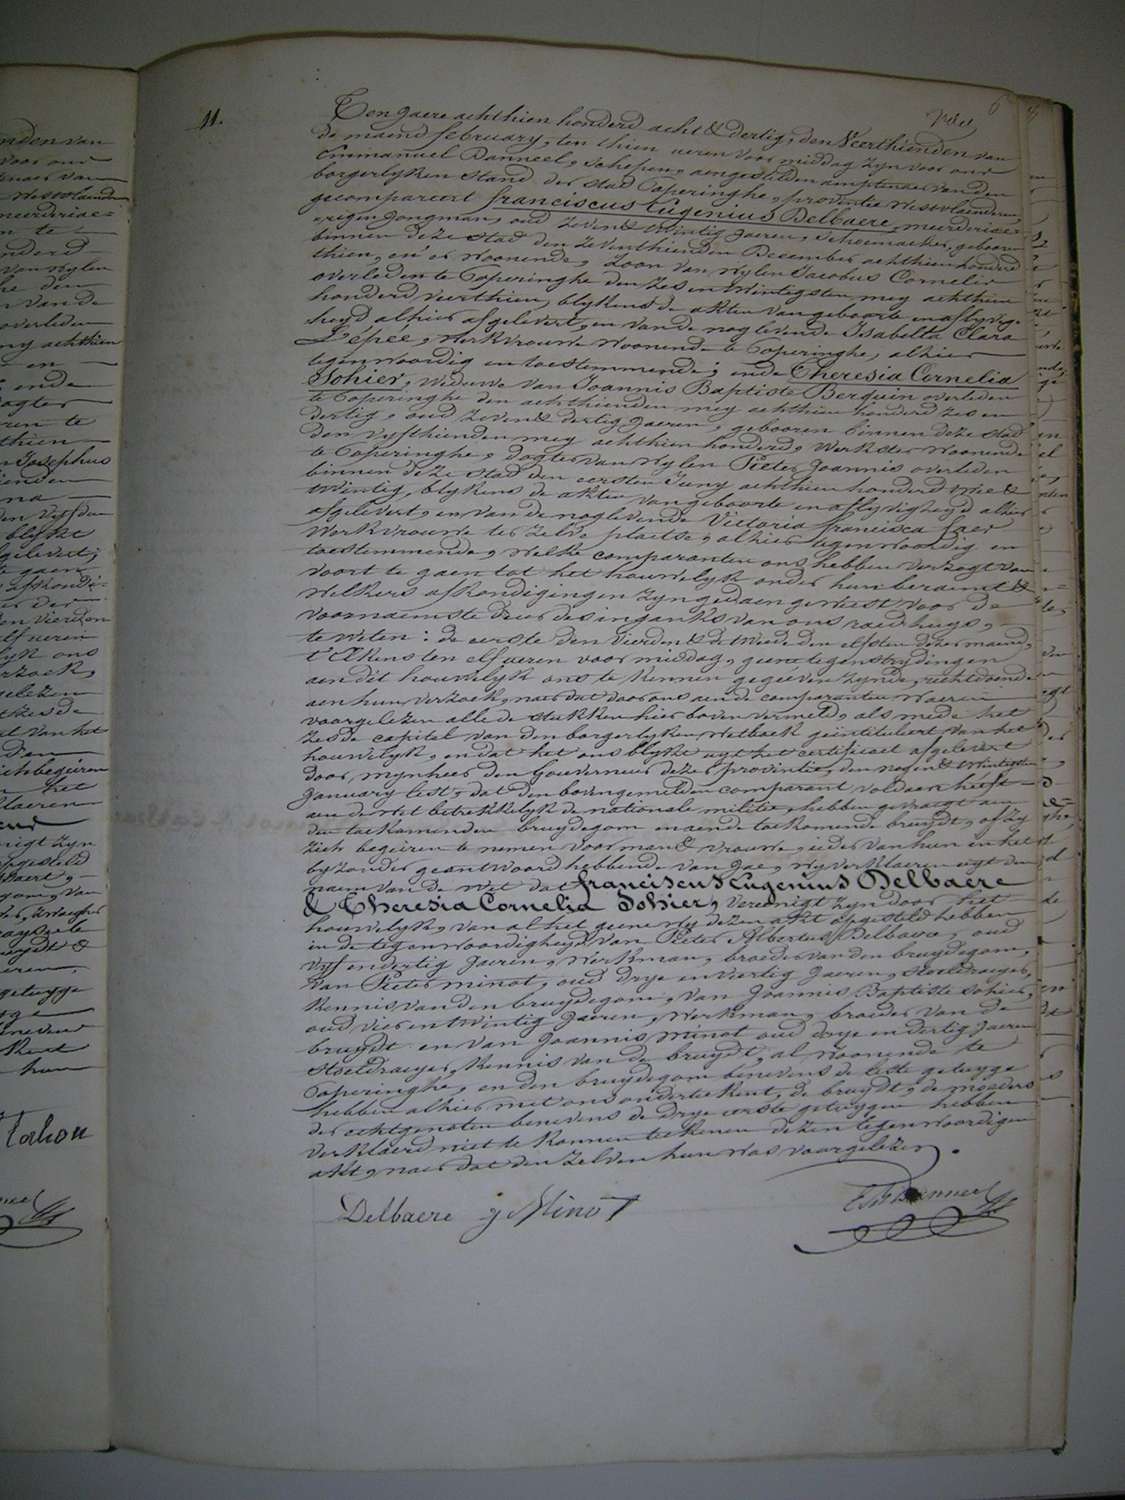 11.
6
Ten jaere achthien honderd acht & dertig, den Veerthienden van
de maend february, ten thien ueren voor middag zyn voor ons
Emmanuel Danneel, schepen, aengestelden amptenaer van den
borgerlyken stand der stad Poperinghe, provintie Westvlaenderen,
gecompareert franciscus Eugenius Delbaere, meerderjae-
rigen jongman, oud zeven & twintig jaeren, schoenmaeker, gebooren
binnen deze stad den zeventhienden December achthien honderd
thien, en er woonende, zoon van wylen Jacobus Cornelis
overleden te Poperinghe den zes en twintigsten mey achthien
honderd veerthien, blykens de akten van geboorte en aflyvig-
heyd alhier afgelevert, en van de nog levende Isabella Clara
L'épée, werkvrouwe woonende te Poperinghe, alhier
tegenwoordig en toestemmende; ende Theresia Cornelia
Sohier, weduwe van Joannis Baptiste Berquin overleden
te Poperinghe den achthienden mey achthien honderd zes en
dertig, oud zeven & dertig jaeren, gebooren binnen deze stad
den vyfthienden mey achthien honderd, werkster woonende
te Poperinghe, dogter van wylen Pieter Joannis overleden
binnen deze stad den eersten Juny achthien honderd drie &
twintig, blykens de akten van geboorte en aflyvigheyd alhier
afgelevert, en van de nog levende Victoria francisca
werkvrouwe ter zelve plaetse, alhier tegenwoordig en
toestemmende, welke comparanten ons hebben verzogt van
voort te gaen tot het houwelyk onder hun beraemt &
welkers afkondigingen zyn gedaen geweest voor de
voornaemste deur des inganks van ons raedhuys,
te weten: de eerste den vierden & de tweede den elfsten dezer maend,
t'elkens ten elf ueren voor middag, geene tegenstrydingen
aen dit houwelyk ons te kennen gegeeven zynde, rechtdoende
aen hun verzoek, naer dat door ons aen de comparanten waeren
voorgelezen alle de stukken hier boven vermeld, als mede het
zesde capitel van den borgerlyken wetboek geintituleert van het
houwelyk, en dat het ons blykt uyt het certificaet afgelevert
door mynheer den Gouverneur dezer provintie, den negen & twintigsten
January lest, dat den bovengemelden comparant voldaen heeft
aen de wet betrekkelyk de nationale militie, hebben gevraegt aen
den toekomenden bruydegom en aen de toekomende bruydt, of zy
zich begeiren te nemen voor man & vrouwe, ieder van hun en het
byzonder geantwoord hebbende van Jae, wy verklaeren uyt den
naem van de wet dat franciscus Eugenius Delbaere
& Theresia Cornelia Sohier, vereenigt zyn door het
houwelyk, van al het geene wy dezen akt opgesteld hebben
in de tegenwoordigheyd van Pieter Albertus Delbaere, oud
vyf en dertig jaeren, werkman, broeder van den bruydegom,
van Pieter minot, oud drye en veertig jaeren, stoeldraeyer,
kennis van den bruydegom, van Joannis Baptiste Sohier,
oud vier en twintig jaeren, werkman, broeder van de
bruydt en van Joannis Minot oud drye en dertig jaeren
stoeldraeyer, kennis van de bruydt, al woonende te
Poperinghe, en den bruydegom benevens de leste getuyge
hebben alhier met ons onderteekent, de bruydt, de moeders
der echtgenoten benevens de drye eerste getuygen hebben
verklaerd niet te konnen teekenen dezen tegenwoordigen
akt, naer dat den zelven hun was voorgelezen.
Delbaere j Minot